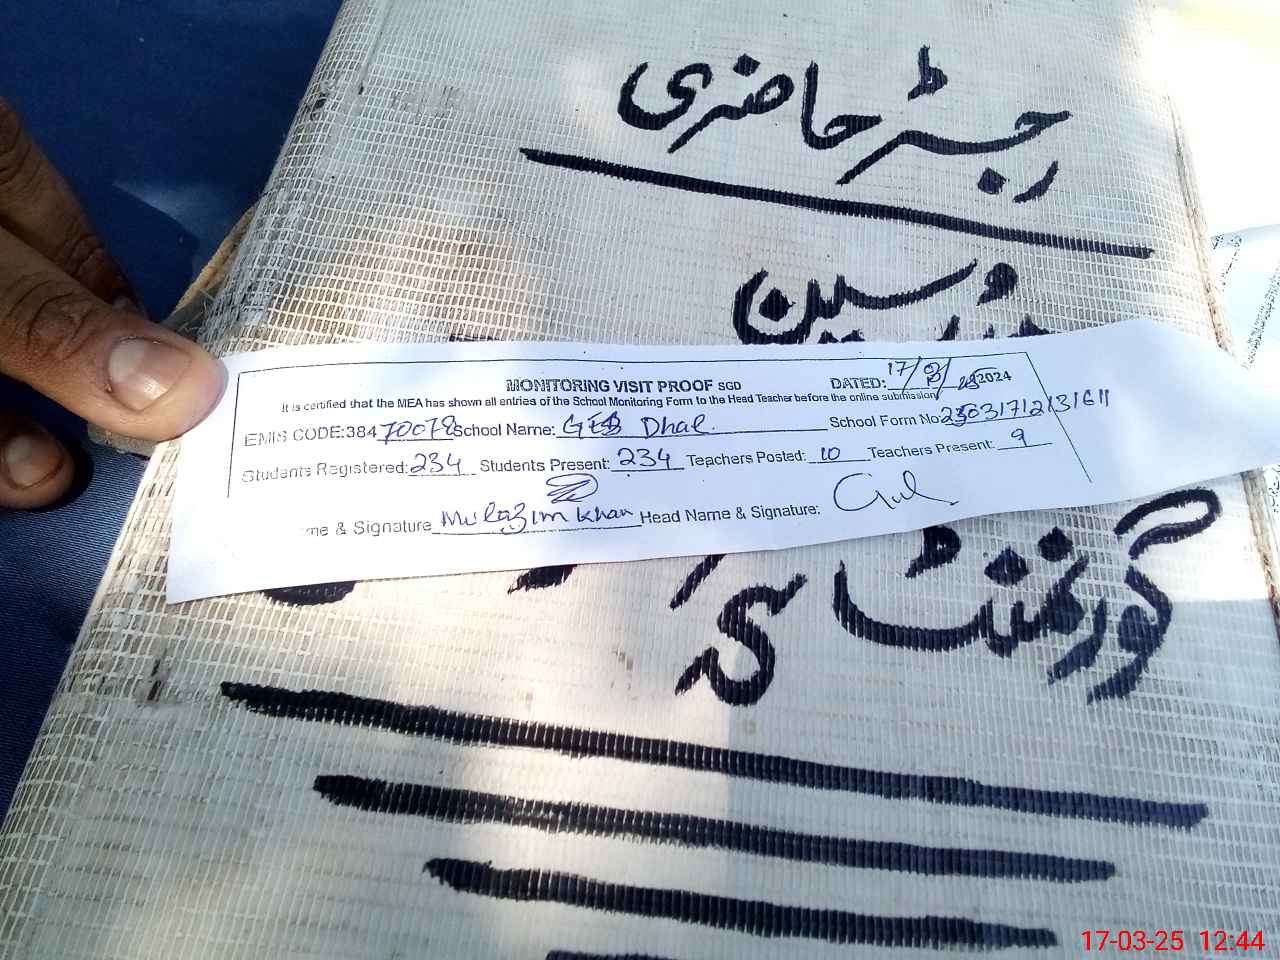 رجسٹر حاضری
مدرسین
MONITORING VISIT PROOF SGD DATED: 17/3/ 2024
It is certified that the MEA has shown all entries of the School Monitoring Form to the Head Teacher before the online submission
EMIS CODE:384 70078 School Name: GEB Dhal. School Form No:
Students Registered: 234 Students Present: 234 Teachers Posted: 10 Teachers Present: 9
me & Signature Mulazim Khan Head Name & Signature: Gul
گورنمنٹ
17-03-25 12:44